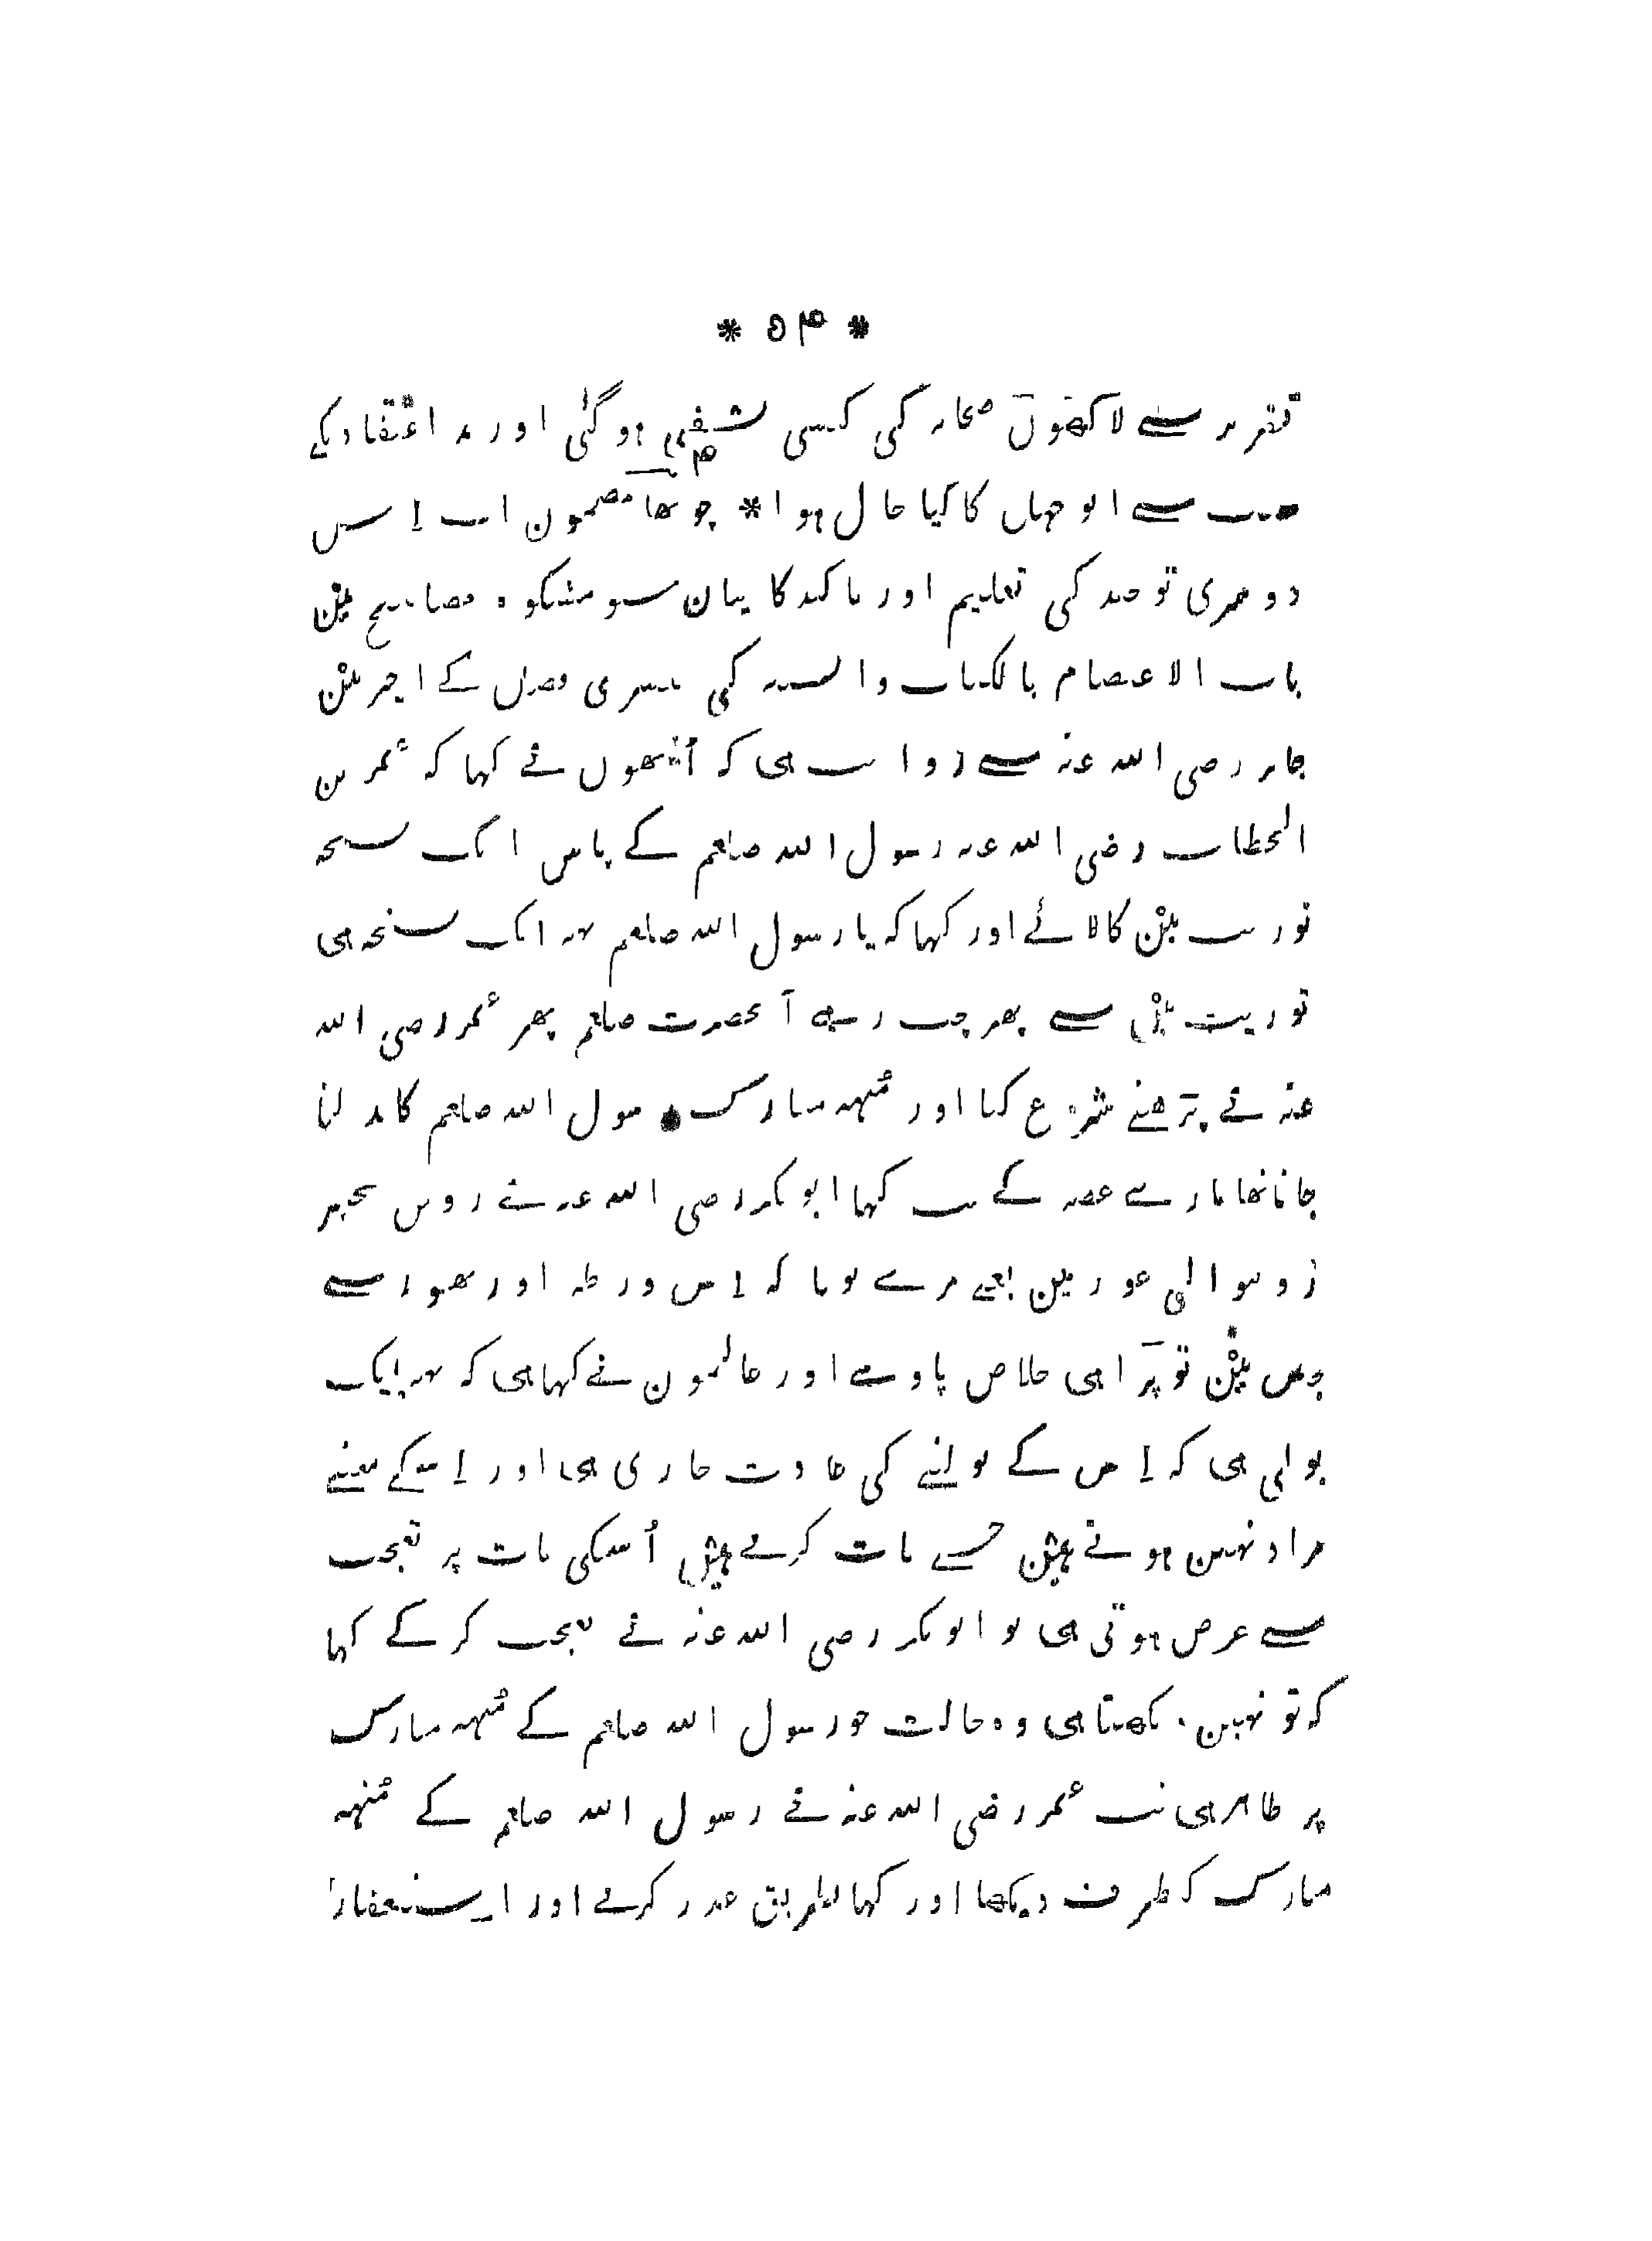 * ۵۴ *
تقریر سے لاکھوں صحابہ کی کیسی تشفی ہو گئی اور بد اعتقاد یکے
سبب سے ابو جہاں کا کیا حال ہوا * چوتھا مضمون اب اِس
دوسری توحید کی تعلیم اور تاکید کا بیان سو مشکوہ مصابیح مین
باب الاعتصام بالکتاب والسنہ کی تیسری فصل کے اخیر مین
جابر رضی اللہ عنہ سے روایت ہی کہ اُنھوں نے کہا کہ عُمر بن
الخطاب رضی اللہ عنہ رسول اللہ صلعم کے پاس ایک نسخہ
توریت مین کا لائے اور کہا کہ یا رسول اللہ صلعم یہ ایک نسخہ ہی
توریت مین سے پھر چپ رہے آنحضرت صلعم پھر عُمر رضی اللہ
عنہ نے پڑھنے شروع کیا اور مُنہہ مبارک رسول اللہ صلعم کا بدلتا
جاتا تھا مارے غصہ کے تب کہا ابو بکر رضی اللہ عنہ نے روویں تجھپر
رونیوالی عورتین یعنے مرے تو تا کہ اِس ورطہ اور بھنور سے
جس مین تو پڑا ہی خلاص پاوے اور عالمون نے کہا ہی کہ یہ ایک
بولی ہی کہ اِس کے بولنے کی عادت جاری ہی اور اِسکے معنے
مراد نہین ہوتے ہین جسے بات کرتے ہین اُسکی بات پر تعجب
سے غرض ہوتی ہی تو ابو بکر رضی اللہ عنہ نے تعجب کر کے کہا
کہ تو نہین دیکھتا ہی وہ حالت جو رسول اللہ صلعم کے مُنہہ مبارک
پر ظاہر ہی تب عُمر رضی اللہ عنہ نے رسول اللہ صلعم کے مُنہہ
مبارک کطرف دیکھا اور کہا بطریق عذر کرنے اور استغفار